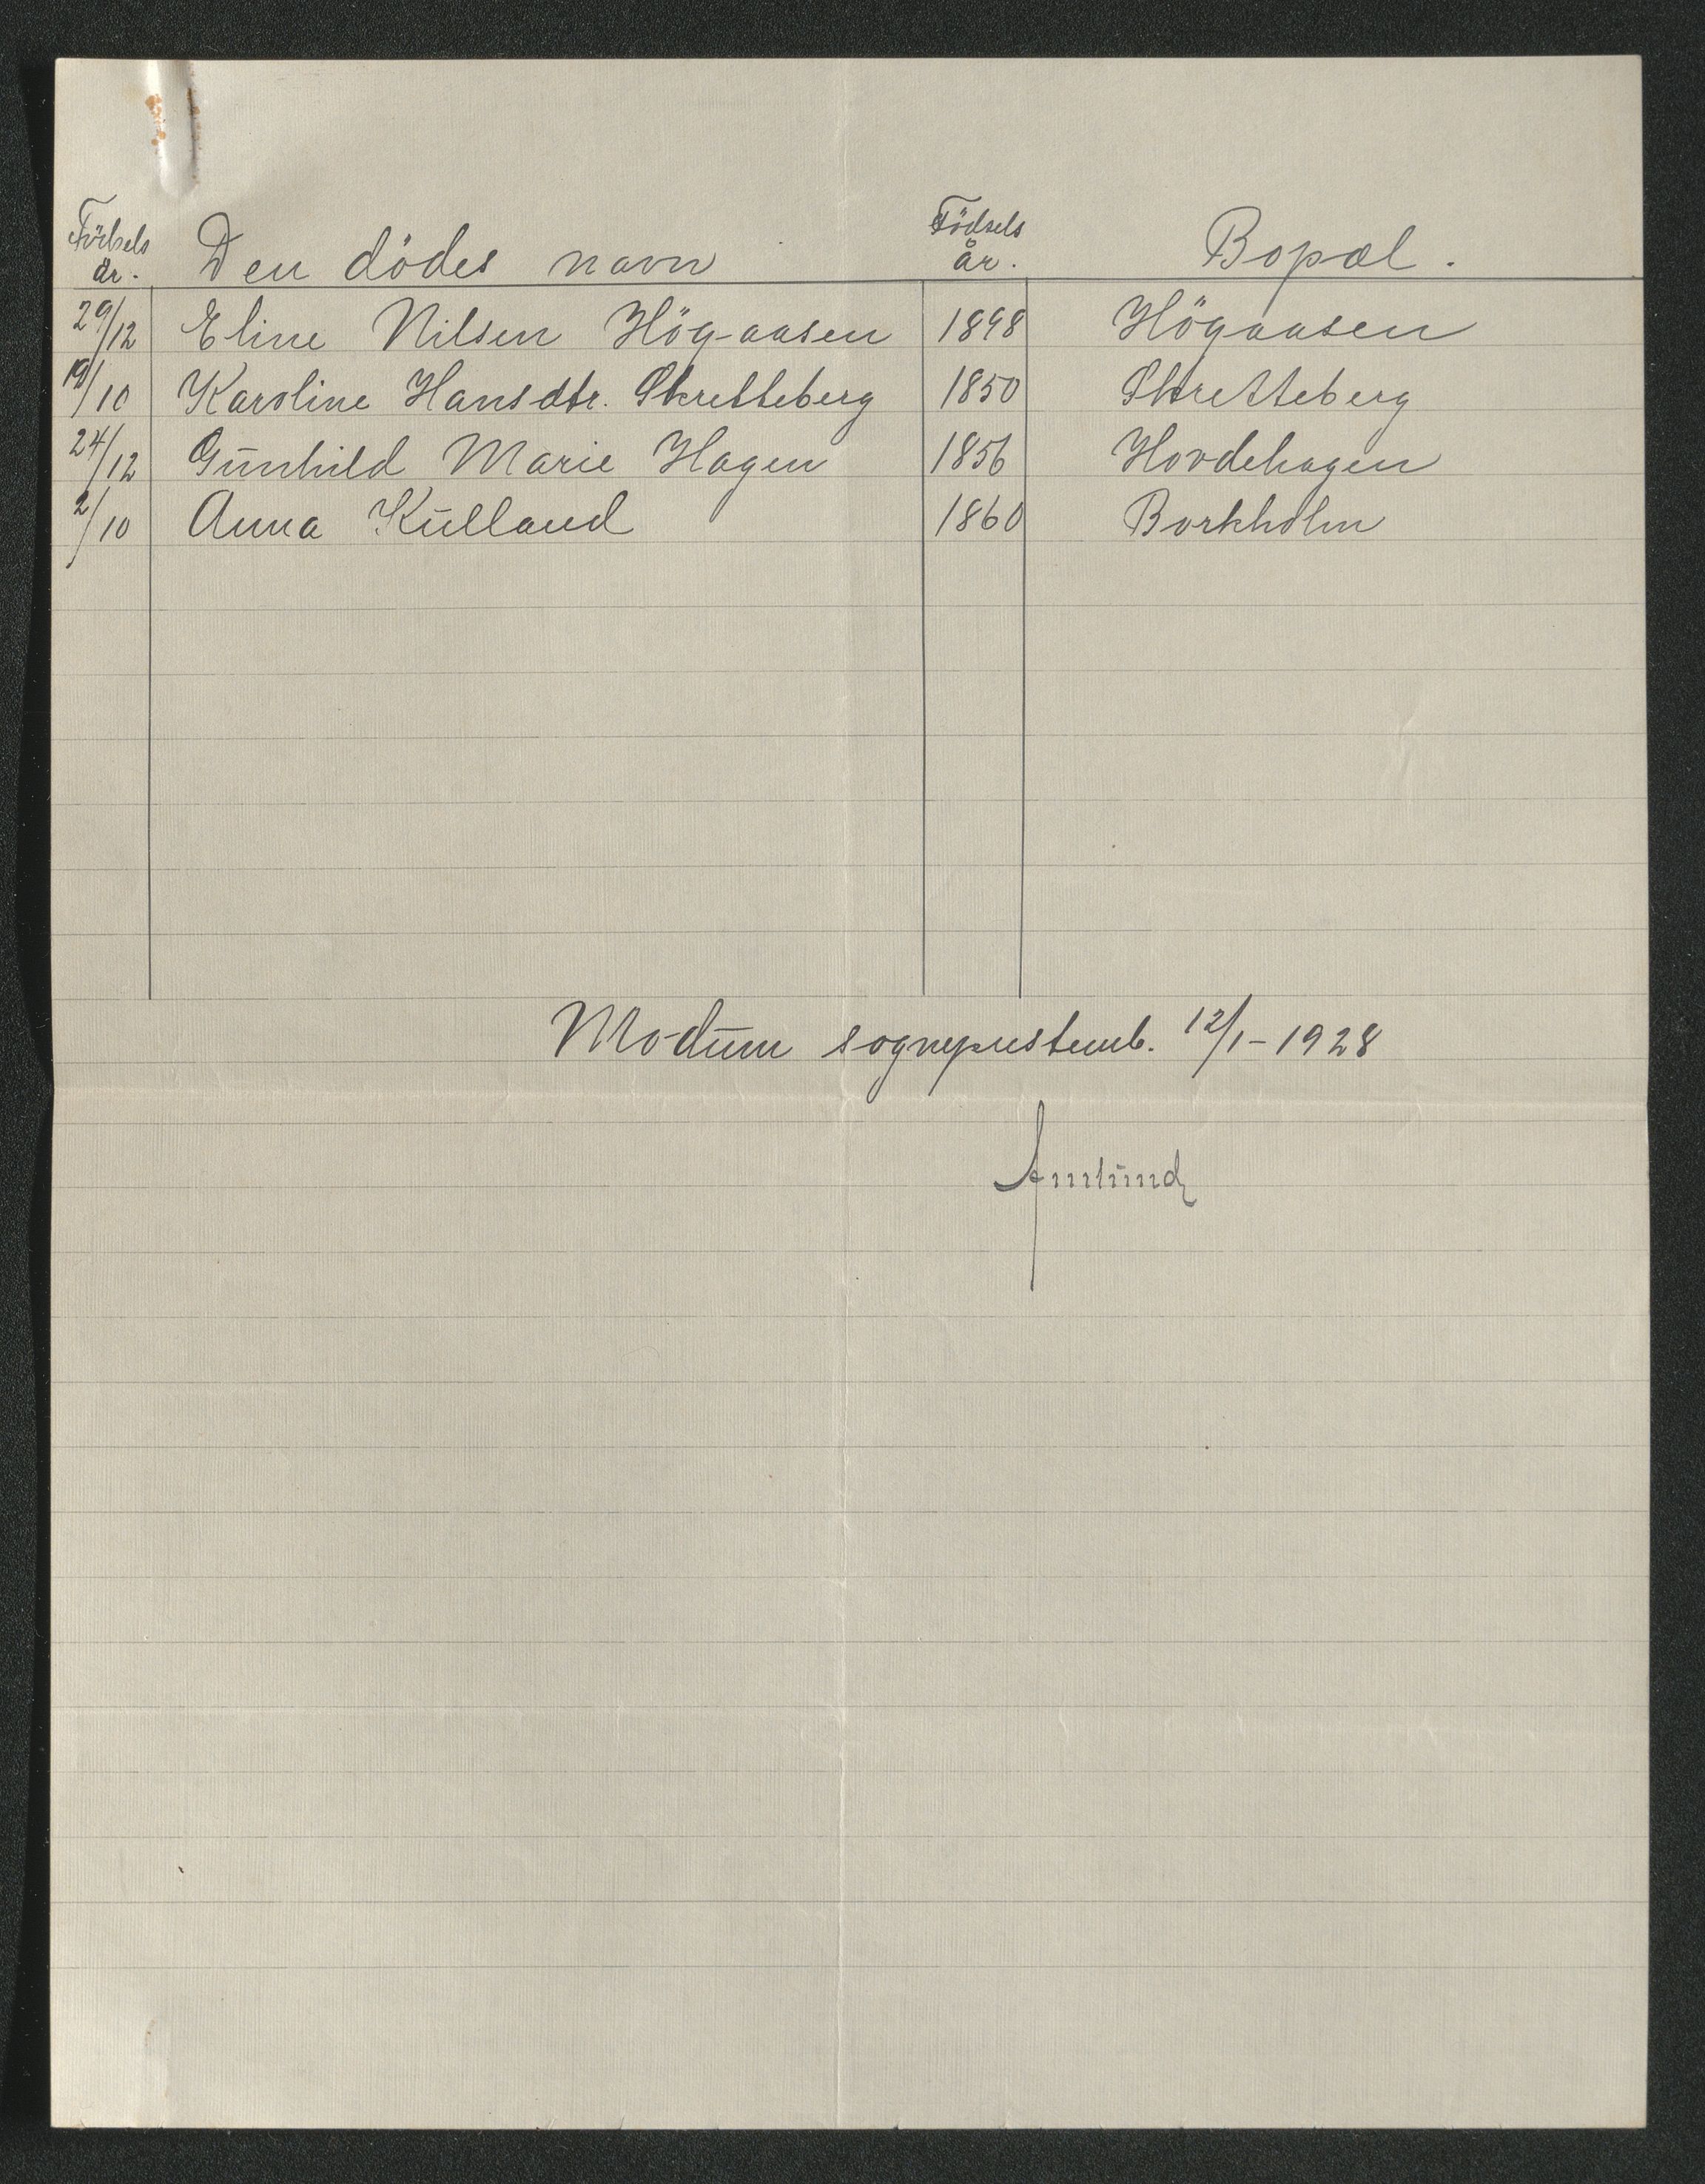 Födsels år. Den dödes navn Födsels år. Bopæl.
29/12 Eline Nilsen Hög-aasen 1898 Högaasen
19/10 Karoline Hansdtr. Skretteberg 1850 Skretteberg
24/12 Gūnhild Marie Hagen 1856 Hovdehagen
2/10 Anna Kūlland 1860 Borkholm
Modūm sogneprestemb. 12/1-1928
Amlūnd